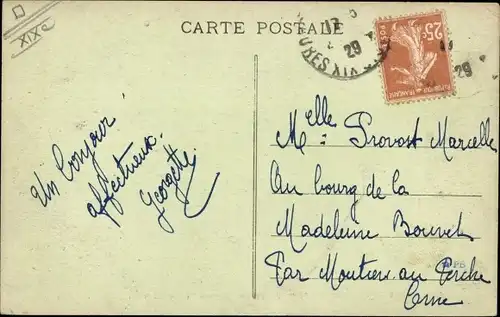 XIXe
CARTE POSTALE
25c
29
29
Un bonjour
affectueux.
Georgette
Melle Provost Marcelle
Au bourg de la
Madeleine Bouvet
Par Moutiers au Perche
Orne